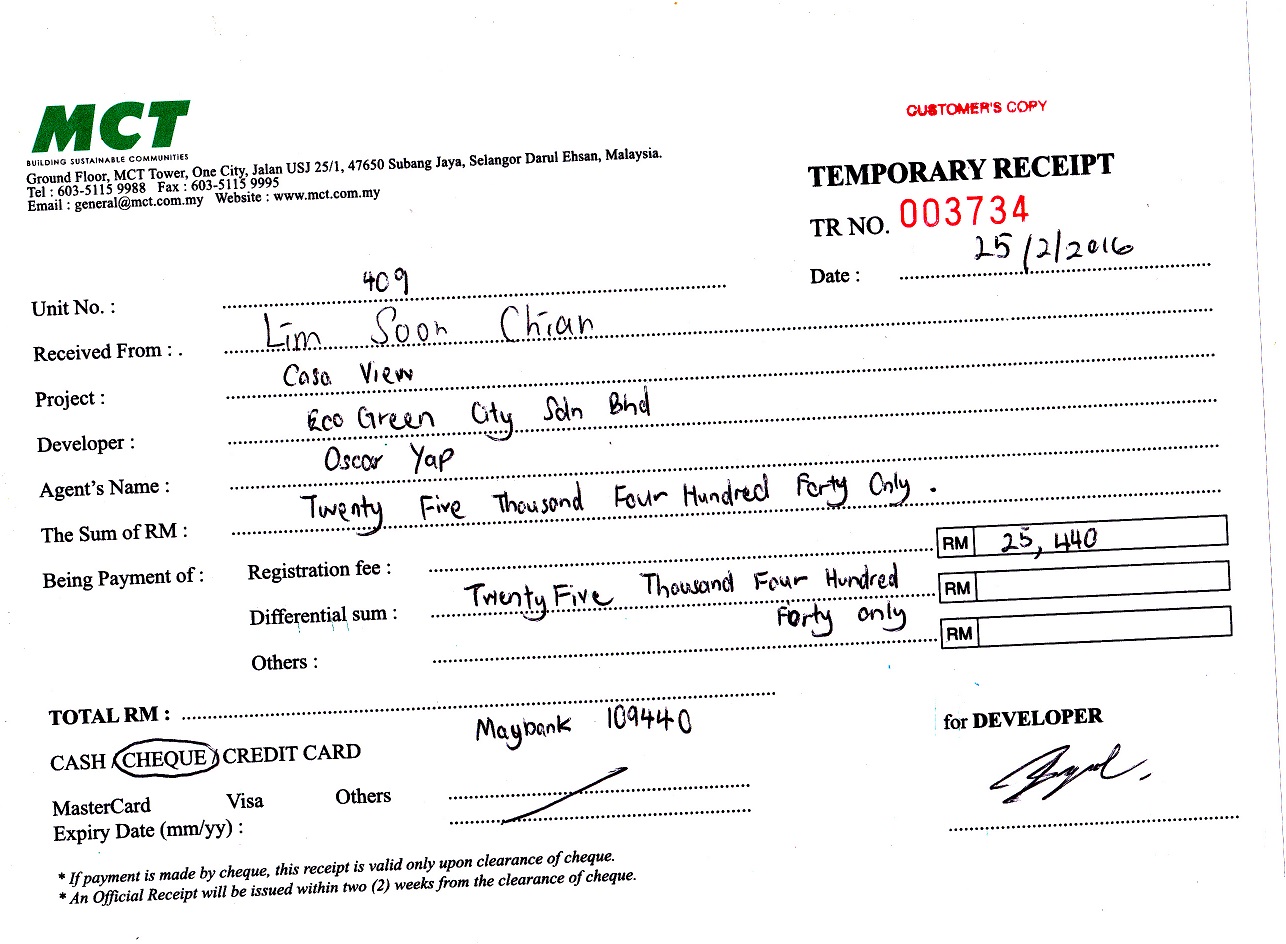 MCT
BUILDING SUSTAINABLE COMMUNITIES
Ground Floor, MCT Tower, One City, Jalan USJ 25/1, 47650 Subang Jaya, Selangor Darul Ehsan, Malaysia.
Tel : 603-5115 9988 Fax : 603-5115 9995
Email : general@mct.com.my Website : www.mct.com.my
CUSTOMER'S COPY
TEMPORARY RECEIPT
TR NO. 003734
Date : 25/2/2016
Unit No. : 409
Received From : . Lim Soon Chian
Project : Casa View
Developer : Eco Green City Sdn Bhd
Agent's Name : Oscar Yap
The Sum of RM : Twenty Five Thousand Four Hundred Forty Only .
Being Payment of : Registration fee : RM 25,440
Differential sum : Twenty Five Thousand Four Hundred RM
Forty only
Others : RM
TOTAL RM :
CASH / CHEQUE / CREDIT CARD Maybank 109440
for DEVELOPER
MasterCard Visa Others
Expiry Date (mm/yy) :
* If payment is made by cheque, this receipt is valid only upon clearance of cheque.
* An Official Receipt will be issued within two (2) weeks from the clearance of cheque.